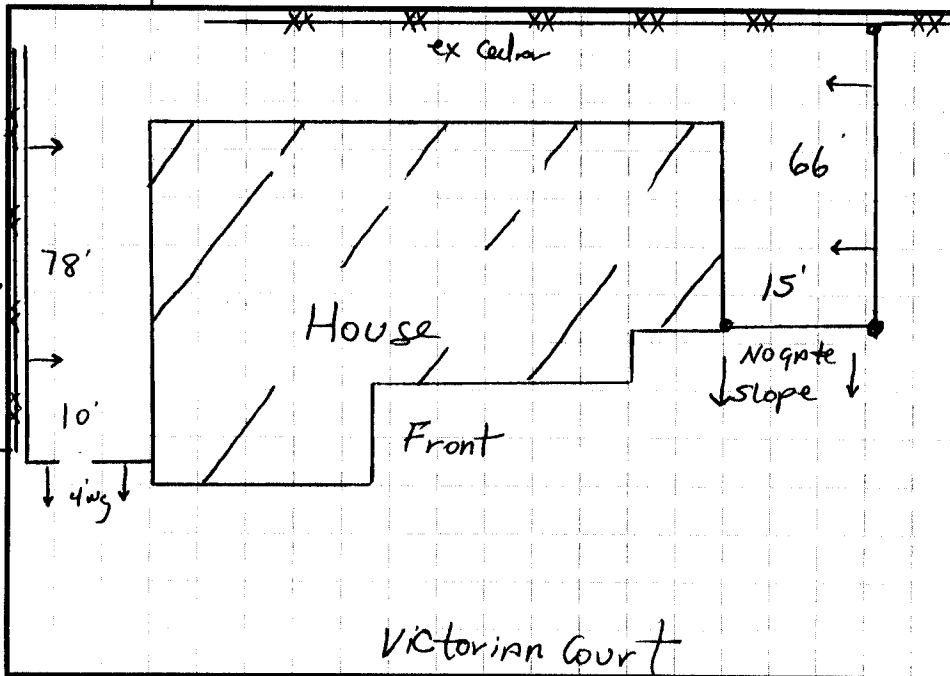 ex cedar
66'
78'
15'
House
No gate
slope
10'
Front
4' wg
Victorian Court